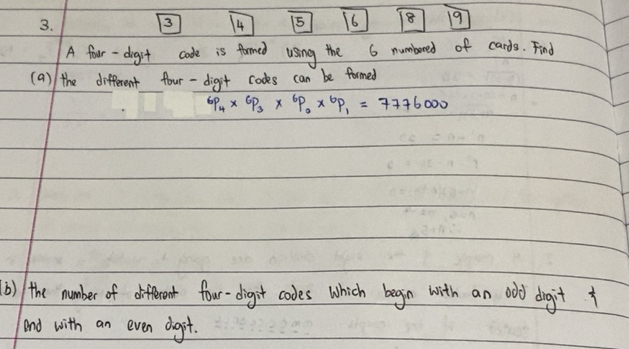 3. 3 4 5 6 8 9
A four-digit code is formed using the 6 numbered of cards. Find
(a) the different four-digit codes can be formed
⁶P₄ × ⁶P₃ × ⁶P₂ × ⁶P₁ = 7776000
(b) the number of different four-digit codes which begin with an odd digit &
end with an even digit.